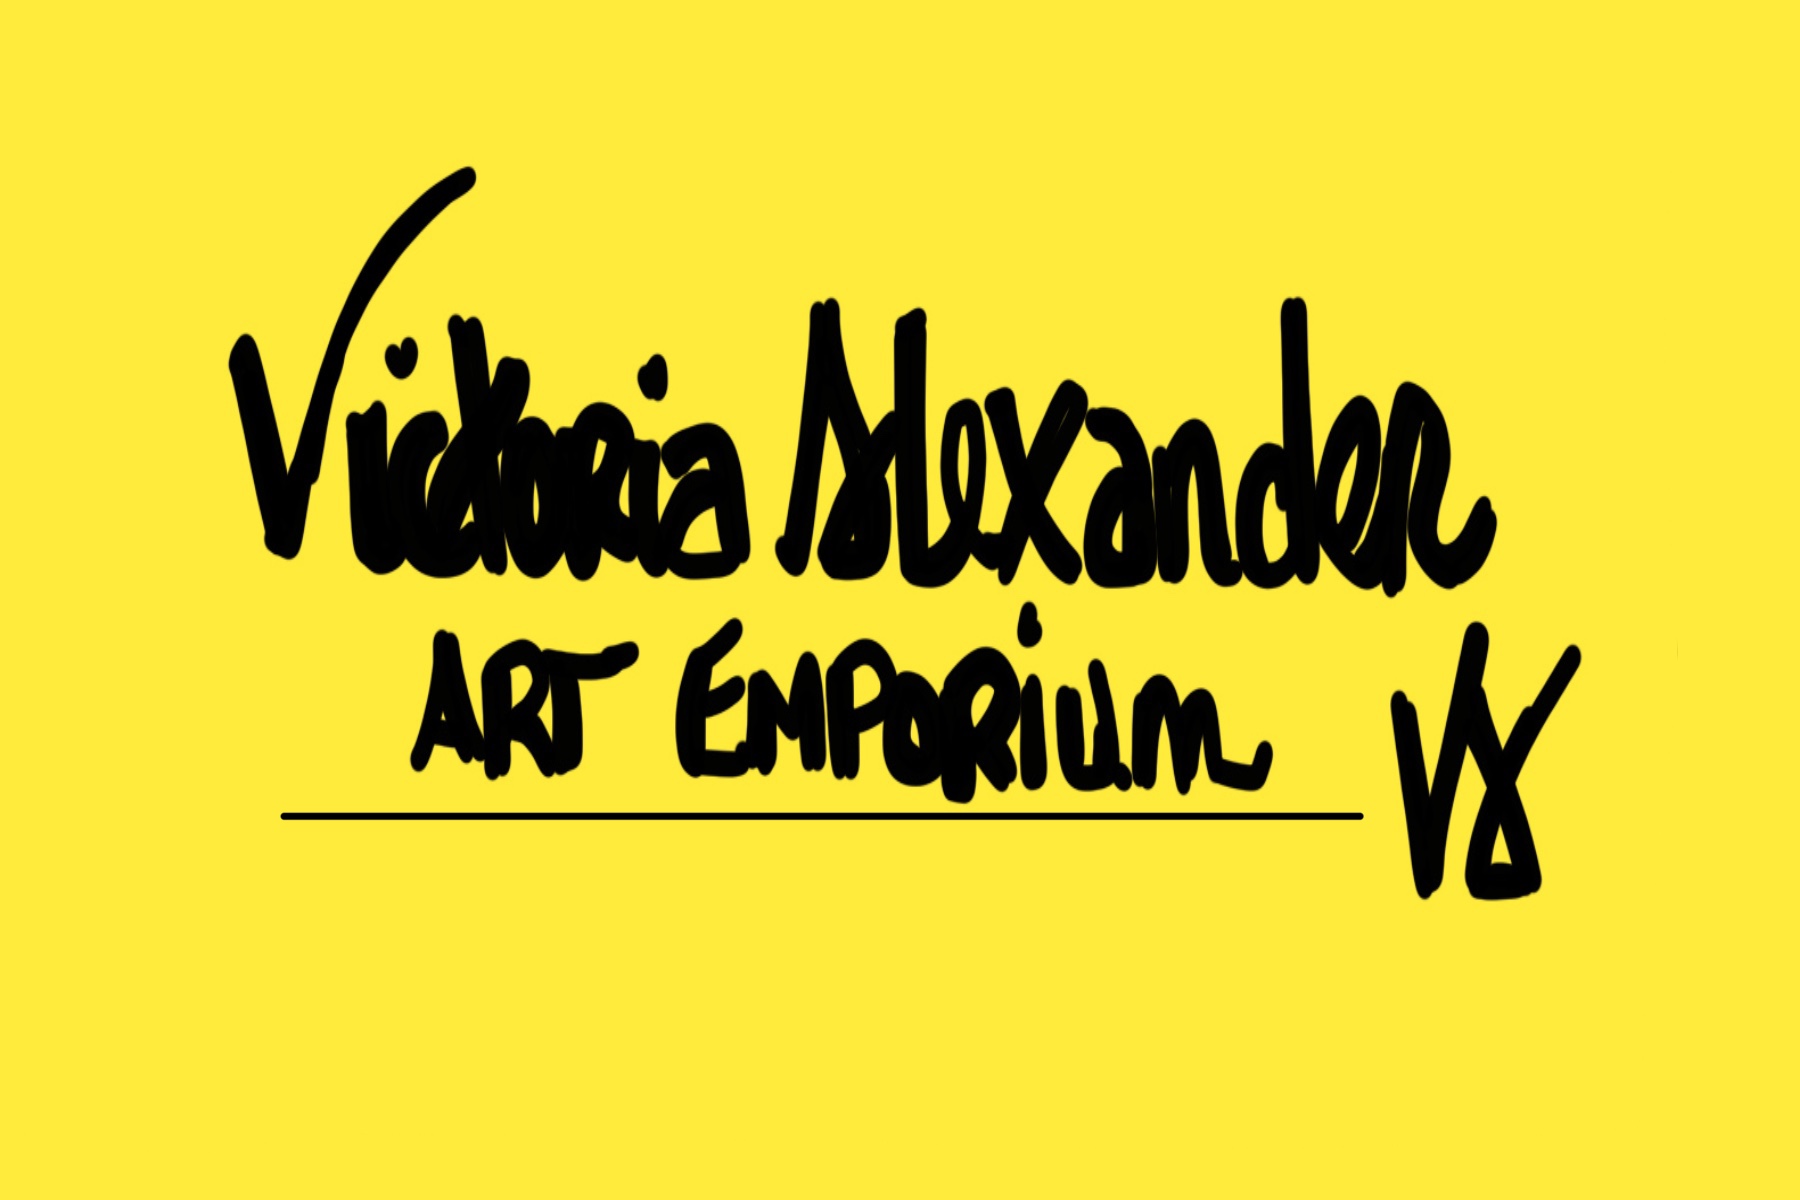 Victoria Alexander
ART EMPORiUM
VA